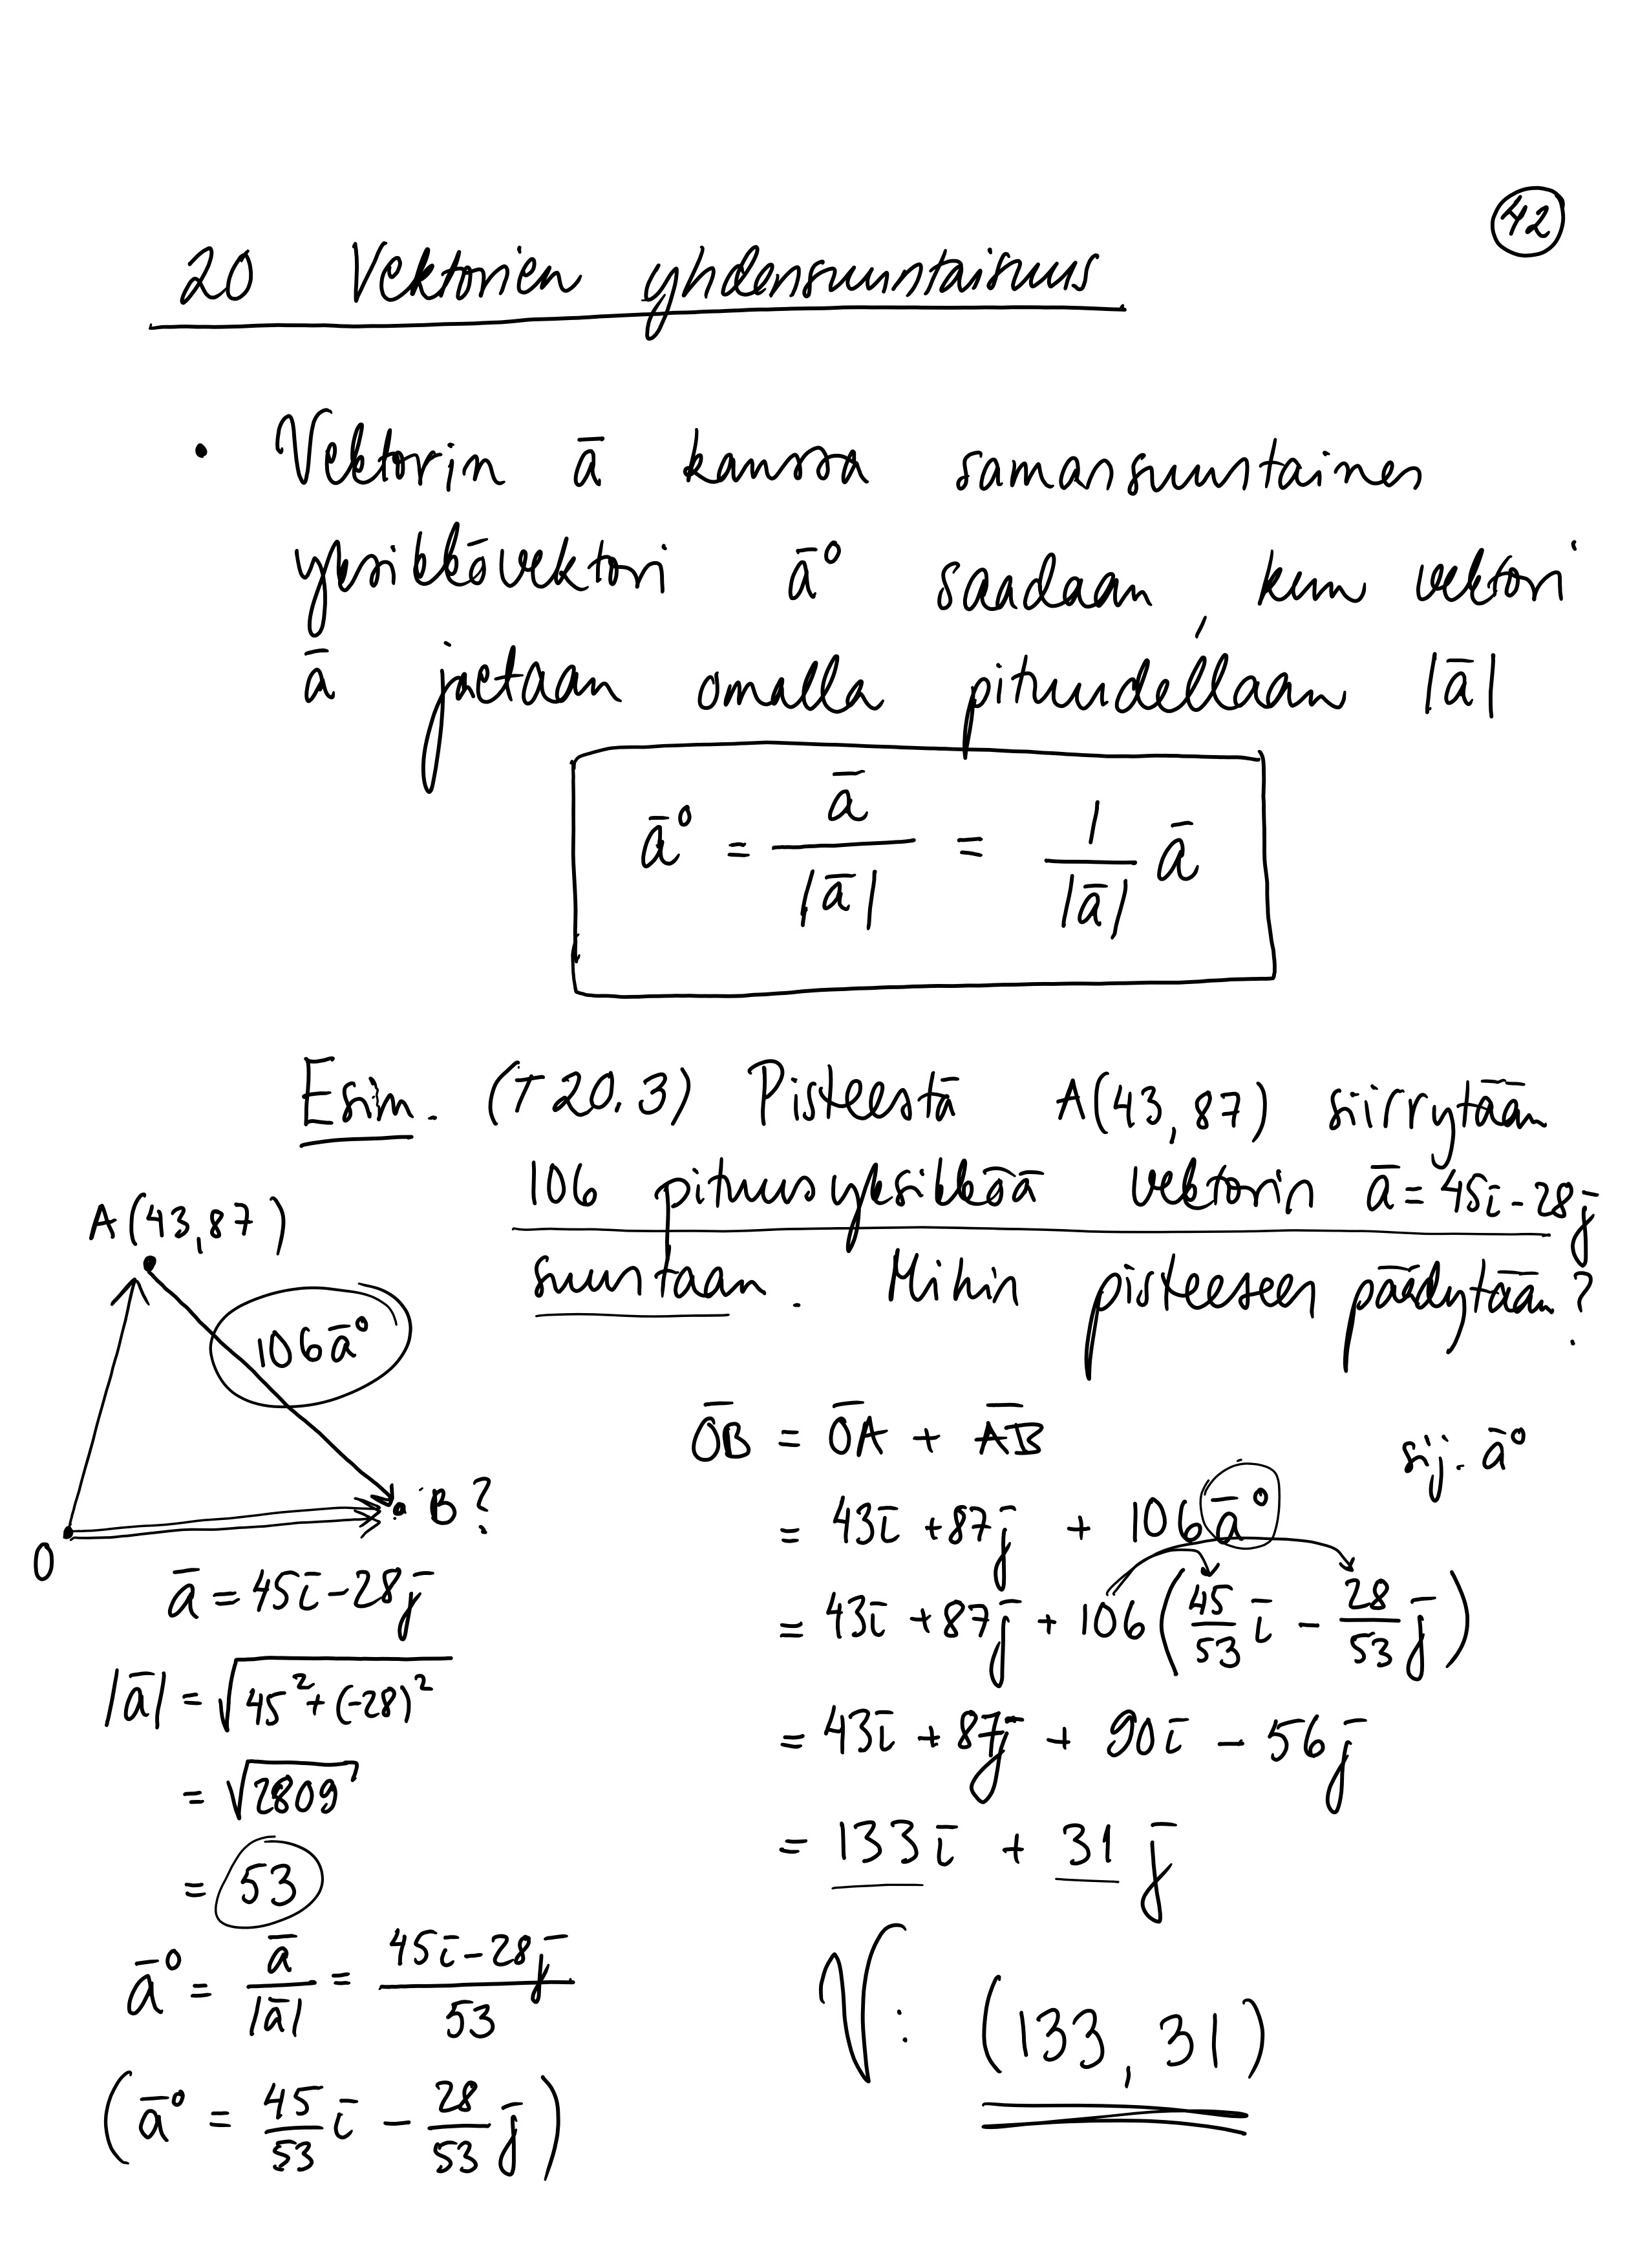 42
20 Vektorien yhdensuuntaisuus
• Vektorin ā kanssa samansuuntainen
yksikkövektori ā° saadaan, kun vektori
ā jaetaan omalla pituudellaan |ā|
ā° = ā / |ā| = 1 / |ā| ā
Esim. (T 20.3) Pisteestä A(43,87) siirrytään
106 pituusyksikköä vektorin ā = 45ī - 28j̄
suuntaan. Mihin pisteeseen päädytään?
A(43,87)
106ā°
B?
O
ā = 45ī - 28j̄
|ā| = √(45² + (-28)²)
= √2809
= 53
ā° = ā / |ā| = (45ī - 28j̄) / 53
(ā° = 45/53 ī - 28/53 j̄)
O̅B̅ = O̅A̅ + A̅B̅
sij. ā°
= 43ī + 87j̄ + 106ā°
= 43ī + 87j̄ + 106(45/53 ī - 28/53 j̄)
= 43ī + 87j̄ + 90ī - 56j̄
= 133ī + 31j̄
V: (133, 31)